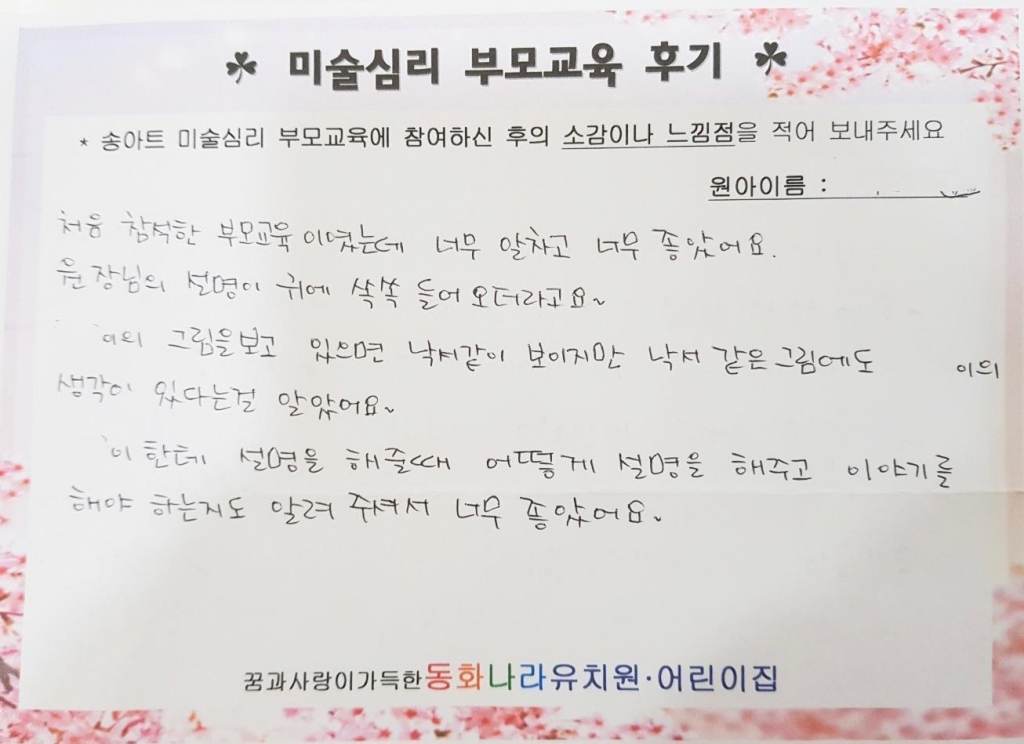 ☘ 미술심리 부모교육 후기 ☘
* 송아트 미술심리 부모교육에 참여하신 후의 소감이나 느낌점을 적어 보내주세요
원아이름 :
처음 참석한 부모교육이였는데 너무 알차고 너무 좋았어요.
원장님의 설명이 귀에 쏙쏙 들어오더라고요~
이의 그림을보고 있으면 낙서같이 보이지만 낙서 같은 그림에도 이의
생각이 있다는걸 알았어요~
이한테 설명을 해줄때 어떻게 설명을 해주고 이야기를
해야 하는지도 알려 주셔서 너무 좋았어요~
꿈과사랑이가득한동화나라유치원·어린이집